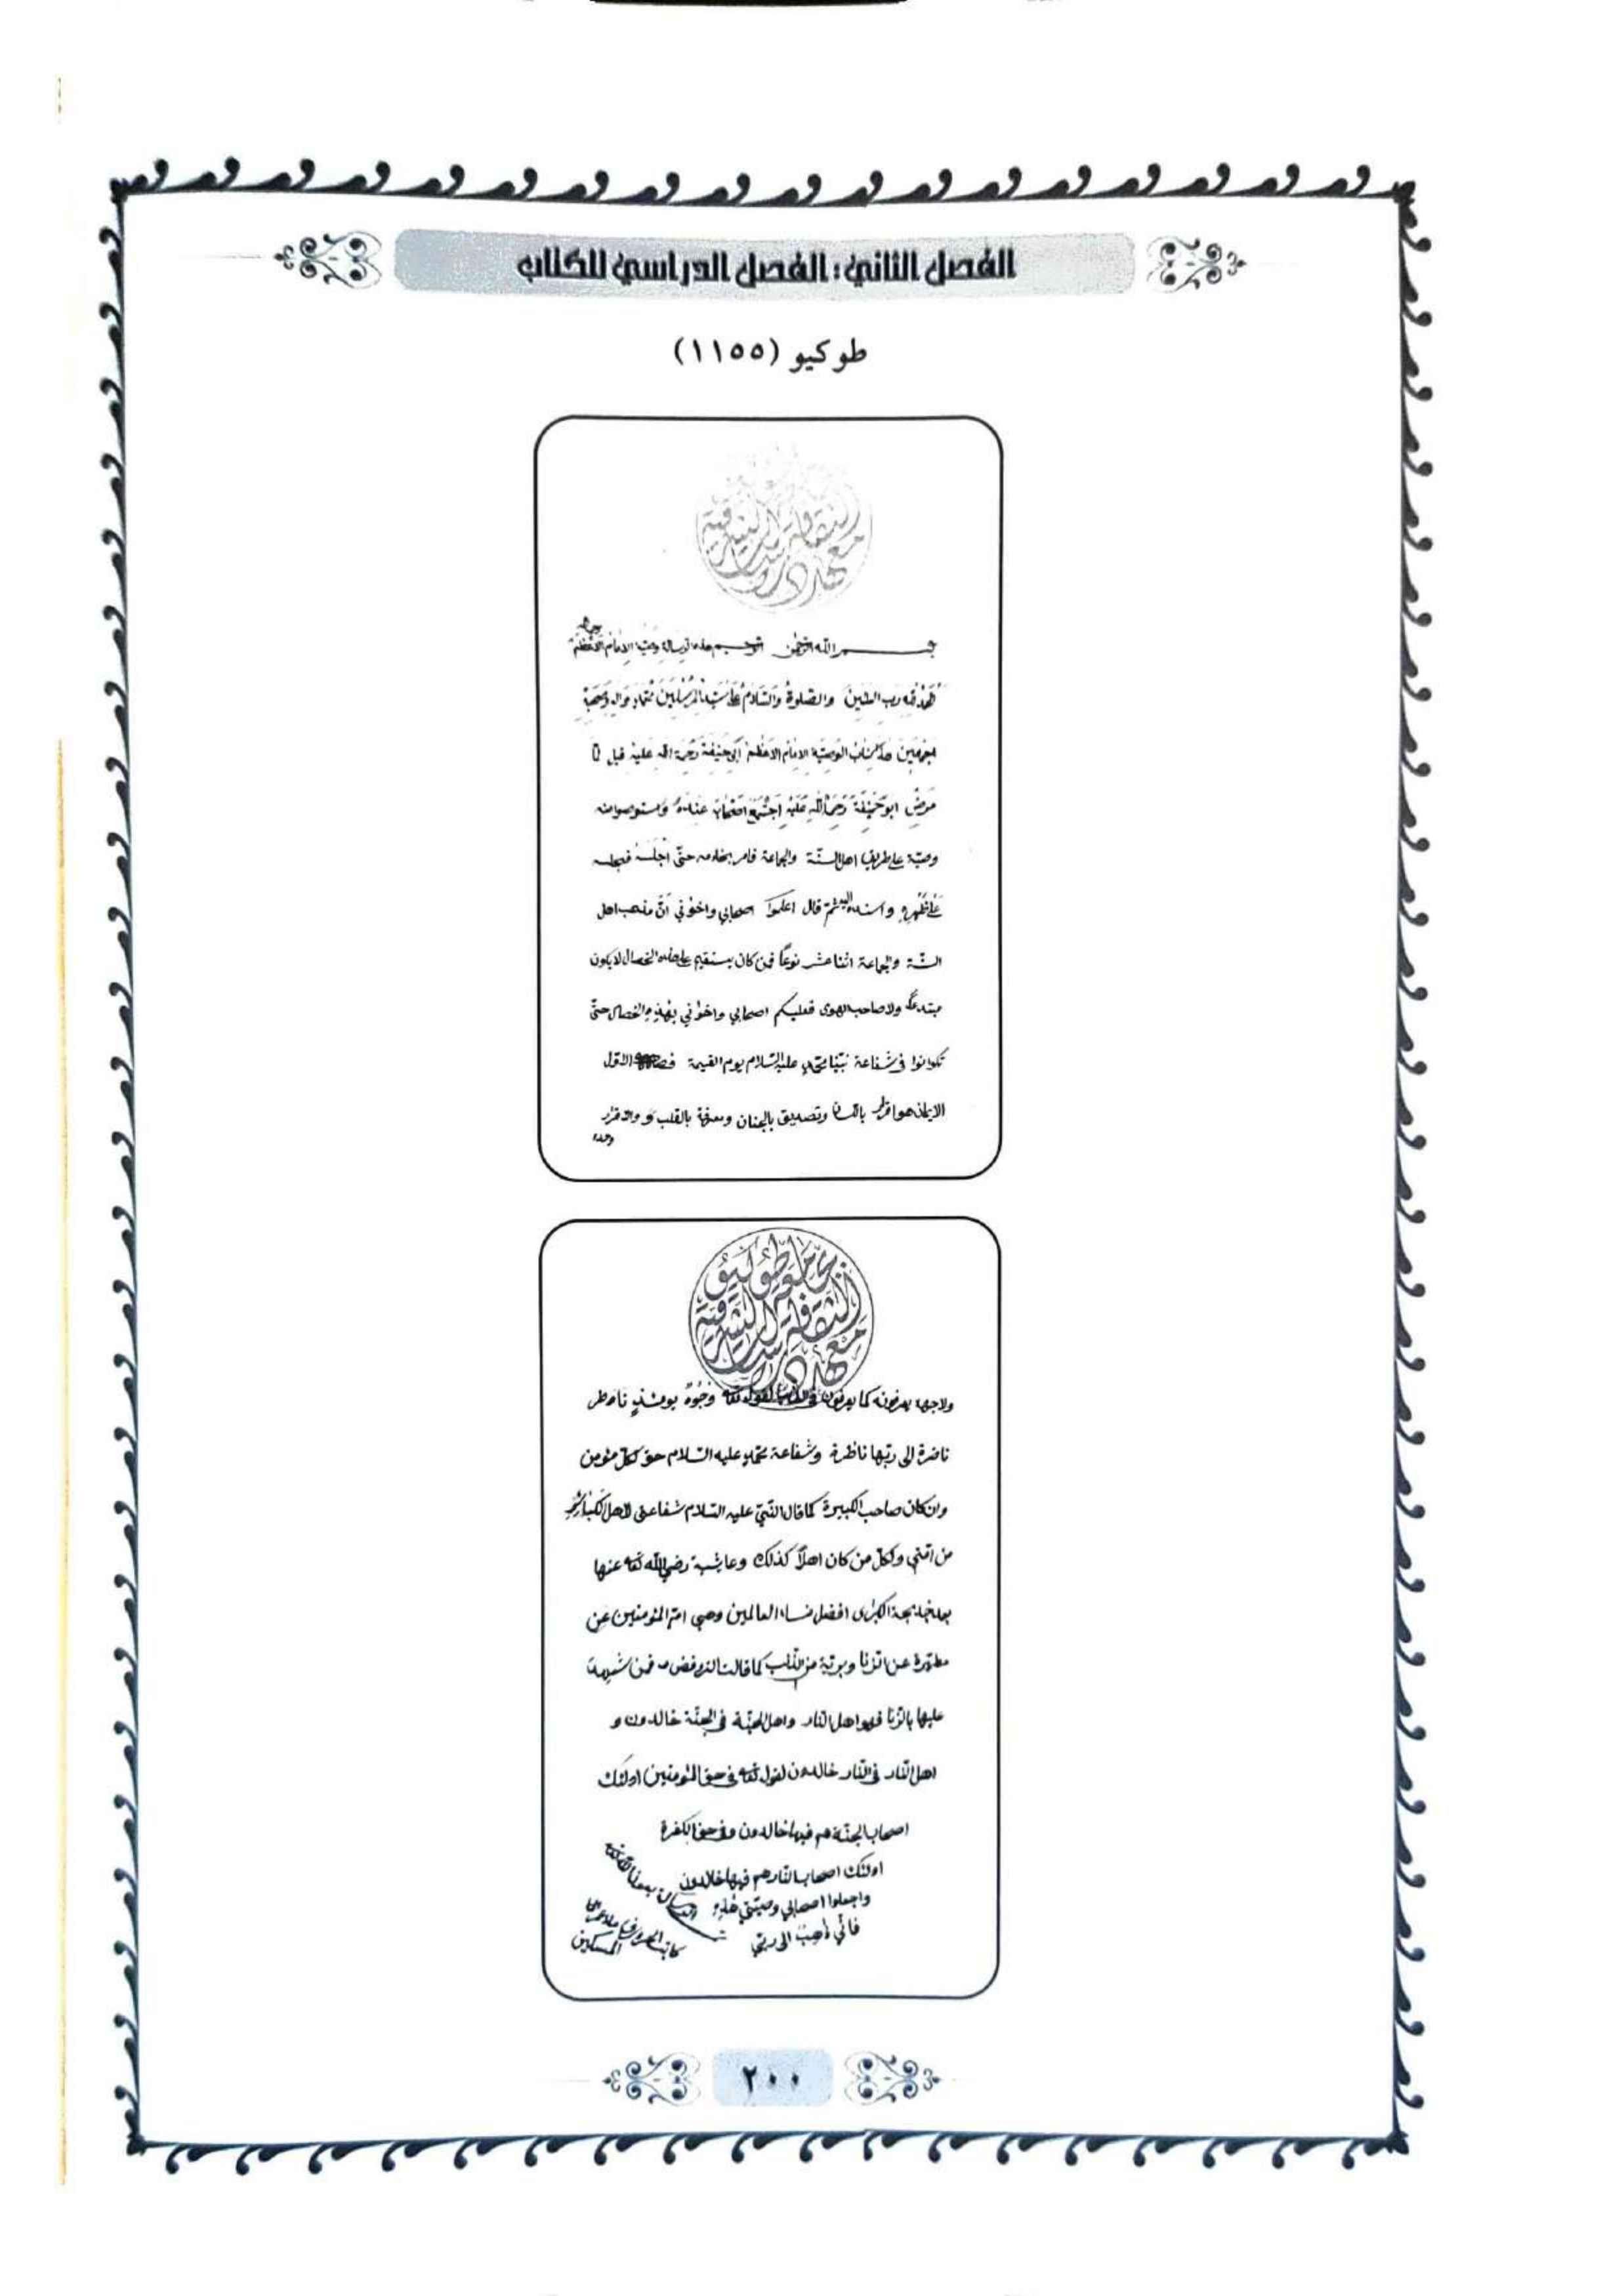 الفصل الثاني: الفصل الدراسي للكتاب
طوكيو (١١٥٥)
بسم الله الرحمن الرحيم هذه الرسالة وصية الإمام الاعظم
الحمد لله رب العالمين والصلوة والسلام على سيد المرسلين محمد واله وصحبه
اجمعين هذا كتاب الوصية الامام الاعظم ابي حنيفة رحمة الله عليه قيل لما
مرض ابو حنيفة رحمة الله عليه اجتمع اصحابه عنده واستوصوا منه
وصية على طريق اهل السنة والجماعة فامر بخادمه حتى اجلسه فجلس
على ظهره واسنده اليه ثم قال اعلموا اصحابي واخوني ان مذهب اهل
السنة والجماعة اثنا عشر نوعا فمن كان يستقيم على هذه الخصال لا يكون
مبتدعا ولا صاحب الهوى فعليكم اصحابي واخوني بهذه الخصال حتى
تكونوا في شفاعة نبينا محمد عليه السلام يوم القيمة الاول
الايمان هو اقرار باللسان وتصديق بالجنان ومعرفة بالقلب والاقرار
وحده
ولا جهة يعرفونه كما يعرفون لقوله تعالى وجوه يومئذ
ناضرة الى ربها ناظرة وشفاعة محمد عليه السلام حق لكل مؤمن
وان كان صاحب الكبيرة كما قال النبي عليه السلام شفاعتى لاهل الكبائر
من امتي ولكل من كان اهلا كذلك وعايشة رضي الله تعالى عنها
بعد خديجة الكبرى افضل نساء العالمين وهي ام المؤمنين
مطهرة عن الزنا وبرية من كما قالت الروافض فمن شهد
عليها بالزنا فهو اهل النار واهل الجنة في الجنة خالدون و
اهل النار في النار خالدون لقوله تعالى في حق المؤمنين اولئك
اصحاب الجنة هم فيها خالدون وفي حق الكفرة
اولئك اصحاب النار هم فيها خالدون
واجعلوا اصحابي وصيتي هذه
فاني ذاهب الى ربي
المسكين
٢٠٠